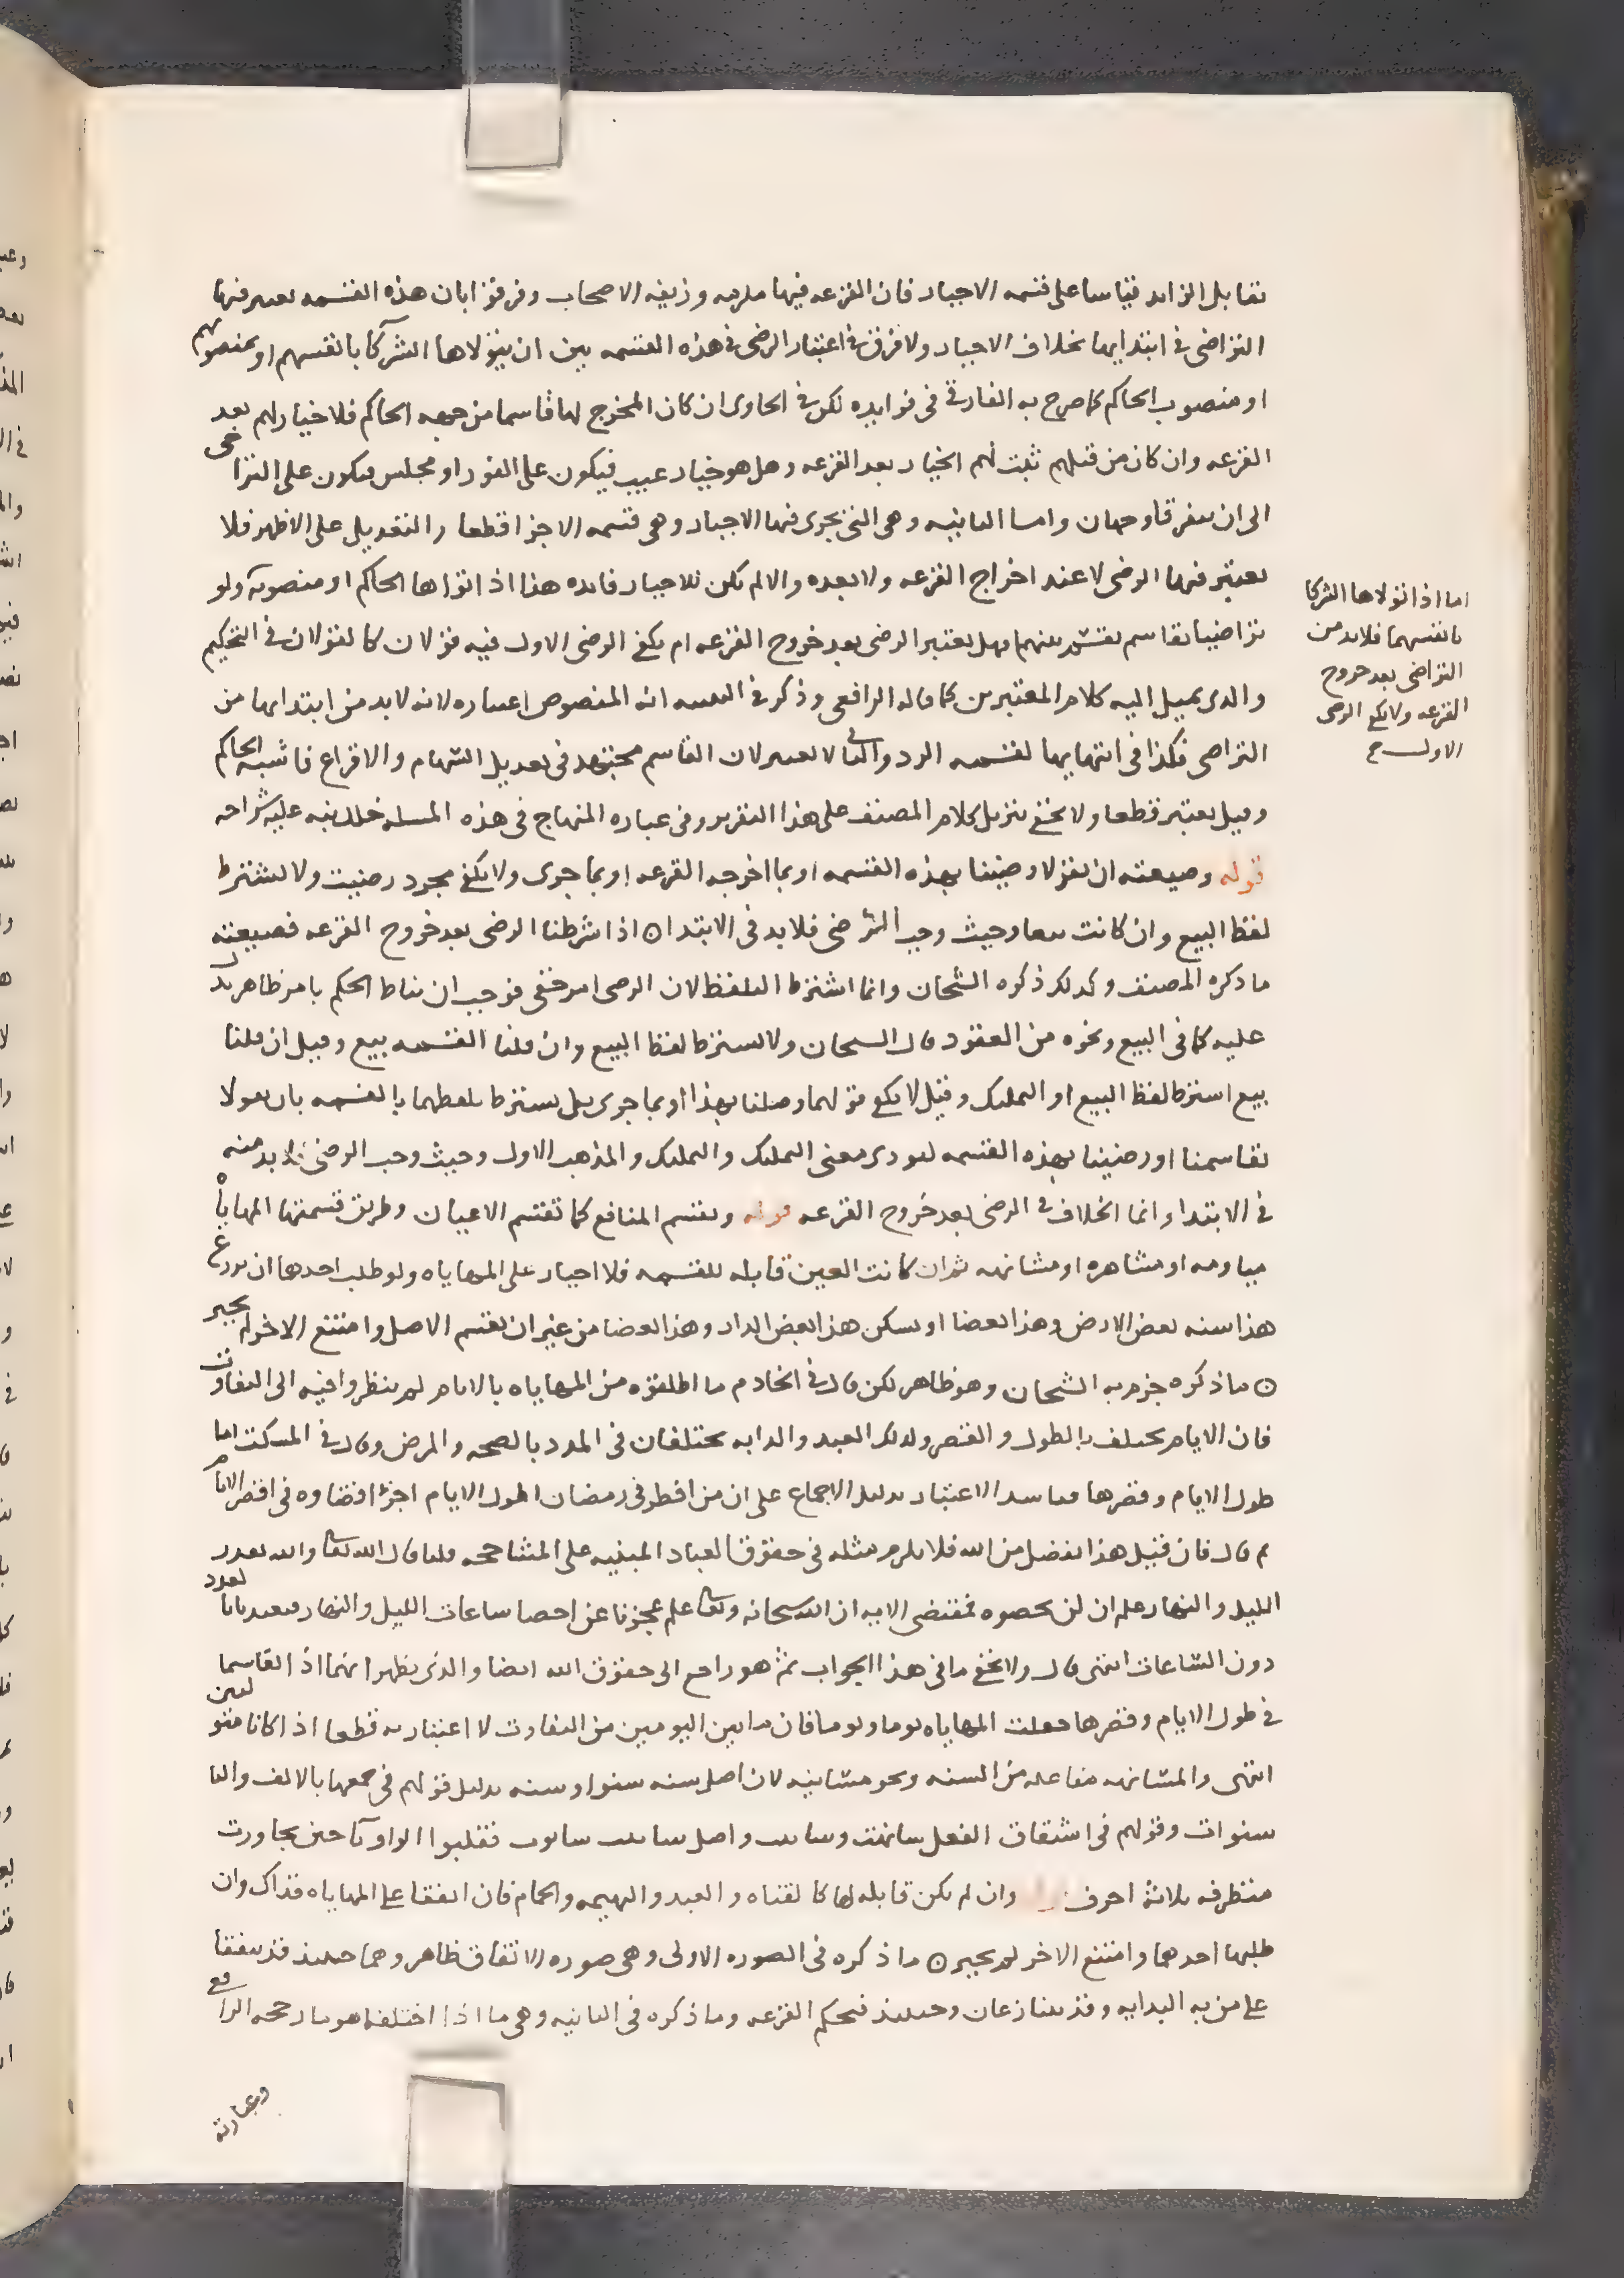 تقابل الزايد قياسا على قسمه الاجبار فان القرعه فيها ملزمه وزيفه الاصحاب وفرقوا بان هذه القسمه يعتبر فيها
التراضى في ابتدايها بخلاف الاجبار ولا فرق في اعتبار الرضى في هذه القسمه بين ان يتولاها الشركا بانفسهم او بمنصوبهم
او منصوب الحاكم كما صرح به الفارقي في فوايده لكن في الحاوى ان كان المخرج لها قاسما من جهه الحاكم فلا خيار لهم بعد
القرعه وان كان من قبلهم ثبت لهم الخيار بعد القرعه وهل هو خيار عيب فيكون على الفور او مجلس فيكون على التراخى
الى ان يتفرقا وجهان واما الثانيه وهى التى يجرى فيها الاجبار وهى قسمه الاجزا قطعا والتعديل على الاظهر فلا
يعتبر فيها الرضى لا عند اخراج القرعه ولا بعده والا لم يكن للاجبار فايده هذا اذا تولاها الحاكم او منصوبه ولو
تراضيا بقاسم يقسم بينهما فهل يعتبر الرضى بعد خروج القرعه ام يكفى الرضى الاول فيه قولان كالقولان في التحكيم
والذى يميل اليه كلام المعتبرين كما قاله الرافعى وذكر في انه المنصوص اعتباره لانه لابد من ابتدايها من
التراضى فكذا في انتهايها لقسمه الرد والثانى لا يعتبر لان القاسم مجتهد في تعديل السهام والاقراع فاشبه الحاكم
وقيل يعتبر قطعا ولا يخفى تنزيل كلام المصنف على هذا التقرير وفى عباره المنهاج في هذه المسله خلل نبه عليه شراحه
قوله وصيغته ان يقولا رضينا بهذه القسمه او بما اخرجه القرعه او بما جرى ولا يكفى مجرد رضيت ولا يشترط
لفظ البيع وان كانت بيعا وحيث وجب التراضى فلا بد في الابتدا ن اذا شرطنا الرضى بعد خروج القرعه فصيغته
ما ذكره المصنف وكذلك ذكره الشيخان وانما اشترط التلفظ لان الرضى امر خفى فوجب ان يناط الحكم بامر ظاهر يدل
عليه كما في البيع ونحوه من العقود قال الشيخان ولا يشترط لفظ البيع وان قلنا القسمه بيع وقيل ان قلنا
بيع اشترط لفظ البيع او التمليك وقيل لا يكفى قولهما رضينا بهذا او بما جرى بل يشترط تلفظهما بالقسمه بان يقولا
تقاسمنا او رضينا بهذه القسمه ليودى معنى التمليك والتملك والمذهب الاول وحيث وجب الرضى فلا بد منه
في الابتداء وانما الخلاف في الرضى بعد خروج القرعه قوله وتقسم المنافع كما تقسم الاعيان وطريق قسمتها المهاياه
مياومه او مشاهره او مشانهه ثم ان كانت العين قابله للقسمه فلا اجبار على المهاياه ولو طلب احدهما ان يزرع
هذا سنه بعض الارض وهذا بعضا او يسكن هذا بعض الدار وهذا بعضا من غير ان يقسم الاصل وامتنع الاخر لم يجبر
ن ما ذكره جزم به الشيخان وهو ظاهر لكن قال في الخادم ما اطلقوه من المهاياه بالايام لم ينظروا فيه الى التفاوت
فان الايام تختلف بالطول والقصر ولذلك العبد والدابه يختلفان في المدد بالصحه والمرض وقال في المسكت اما
طول الايام وقصرها فاسد الاعتبار بدليل الاجماع على ان من افطر في رمضان اطول الايام اجزا قضاوه في اقصر الايام
ثم قال فان قيل هذا تفضل من الله فلا يلزم مثله في حقوق العباد المبنيه على المشاححه قلنا قال الله تعالى والله يقدر
الليل والنهار علم ان لن تحصوه فمقتضى الايه ان الله سبحانه وتعالى علم عجزنا عن احصا ساعات الليل والنهار
دون الساعات انتهى قال ولا يخفى ما في هذا الجواب ثم هو راجع الى حقوق الله ايضا والذى يظهر انهما اذا تقاسما
في طول الايام وقصرها جعلت المهاياه يوما ويوما فان ما بين اليومين من التفاوت لا اعتبار به قطعا اذا كانا متواليين
انتهى والمشانهه مفاعله من السنه ونحو مشانيه لان اصل سنه سنوا وسنه بدليل قولهم في جمعها بالالف والتا
سنوات وقولهم في اشتقاق الفعل سانهت وسانيت واصل سانيت سانوت فقلبوا الواو يا حين جاورت
متطرفه ثلاثة احرف قوله وان لم تكن قابله لها كالقناه والعبد والبهيمه والحمام فان اتفقا على المهاياه فذاك وان
طلبها احدهما وامتنع الاخر لم يجبر ن ما ذكره في الصوره الاولى وهى صوره الاتفاق ظاهر وهما حينئذ قد يتفقا
على من به البدايه وقد يتنازعان وحينئذ فتحكم القرعه وما ذكره في الثانيه وهى ما اذا اختلفا هو ما رجحه الرافعى
وعبارته
اما اذا تولاها الشركا
بانفسهما فلابد من
التراضى بعد خروج
القرعه ولا يكفى الرضى
الاول صح